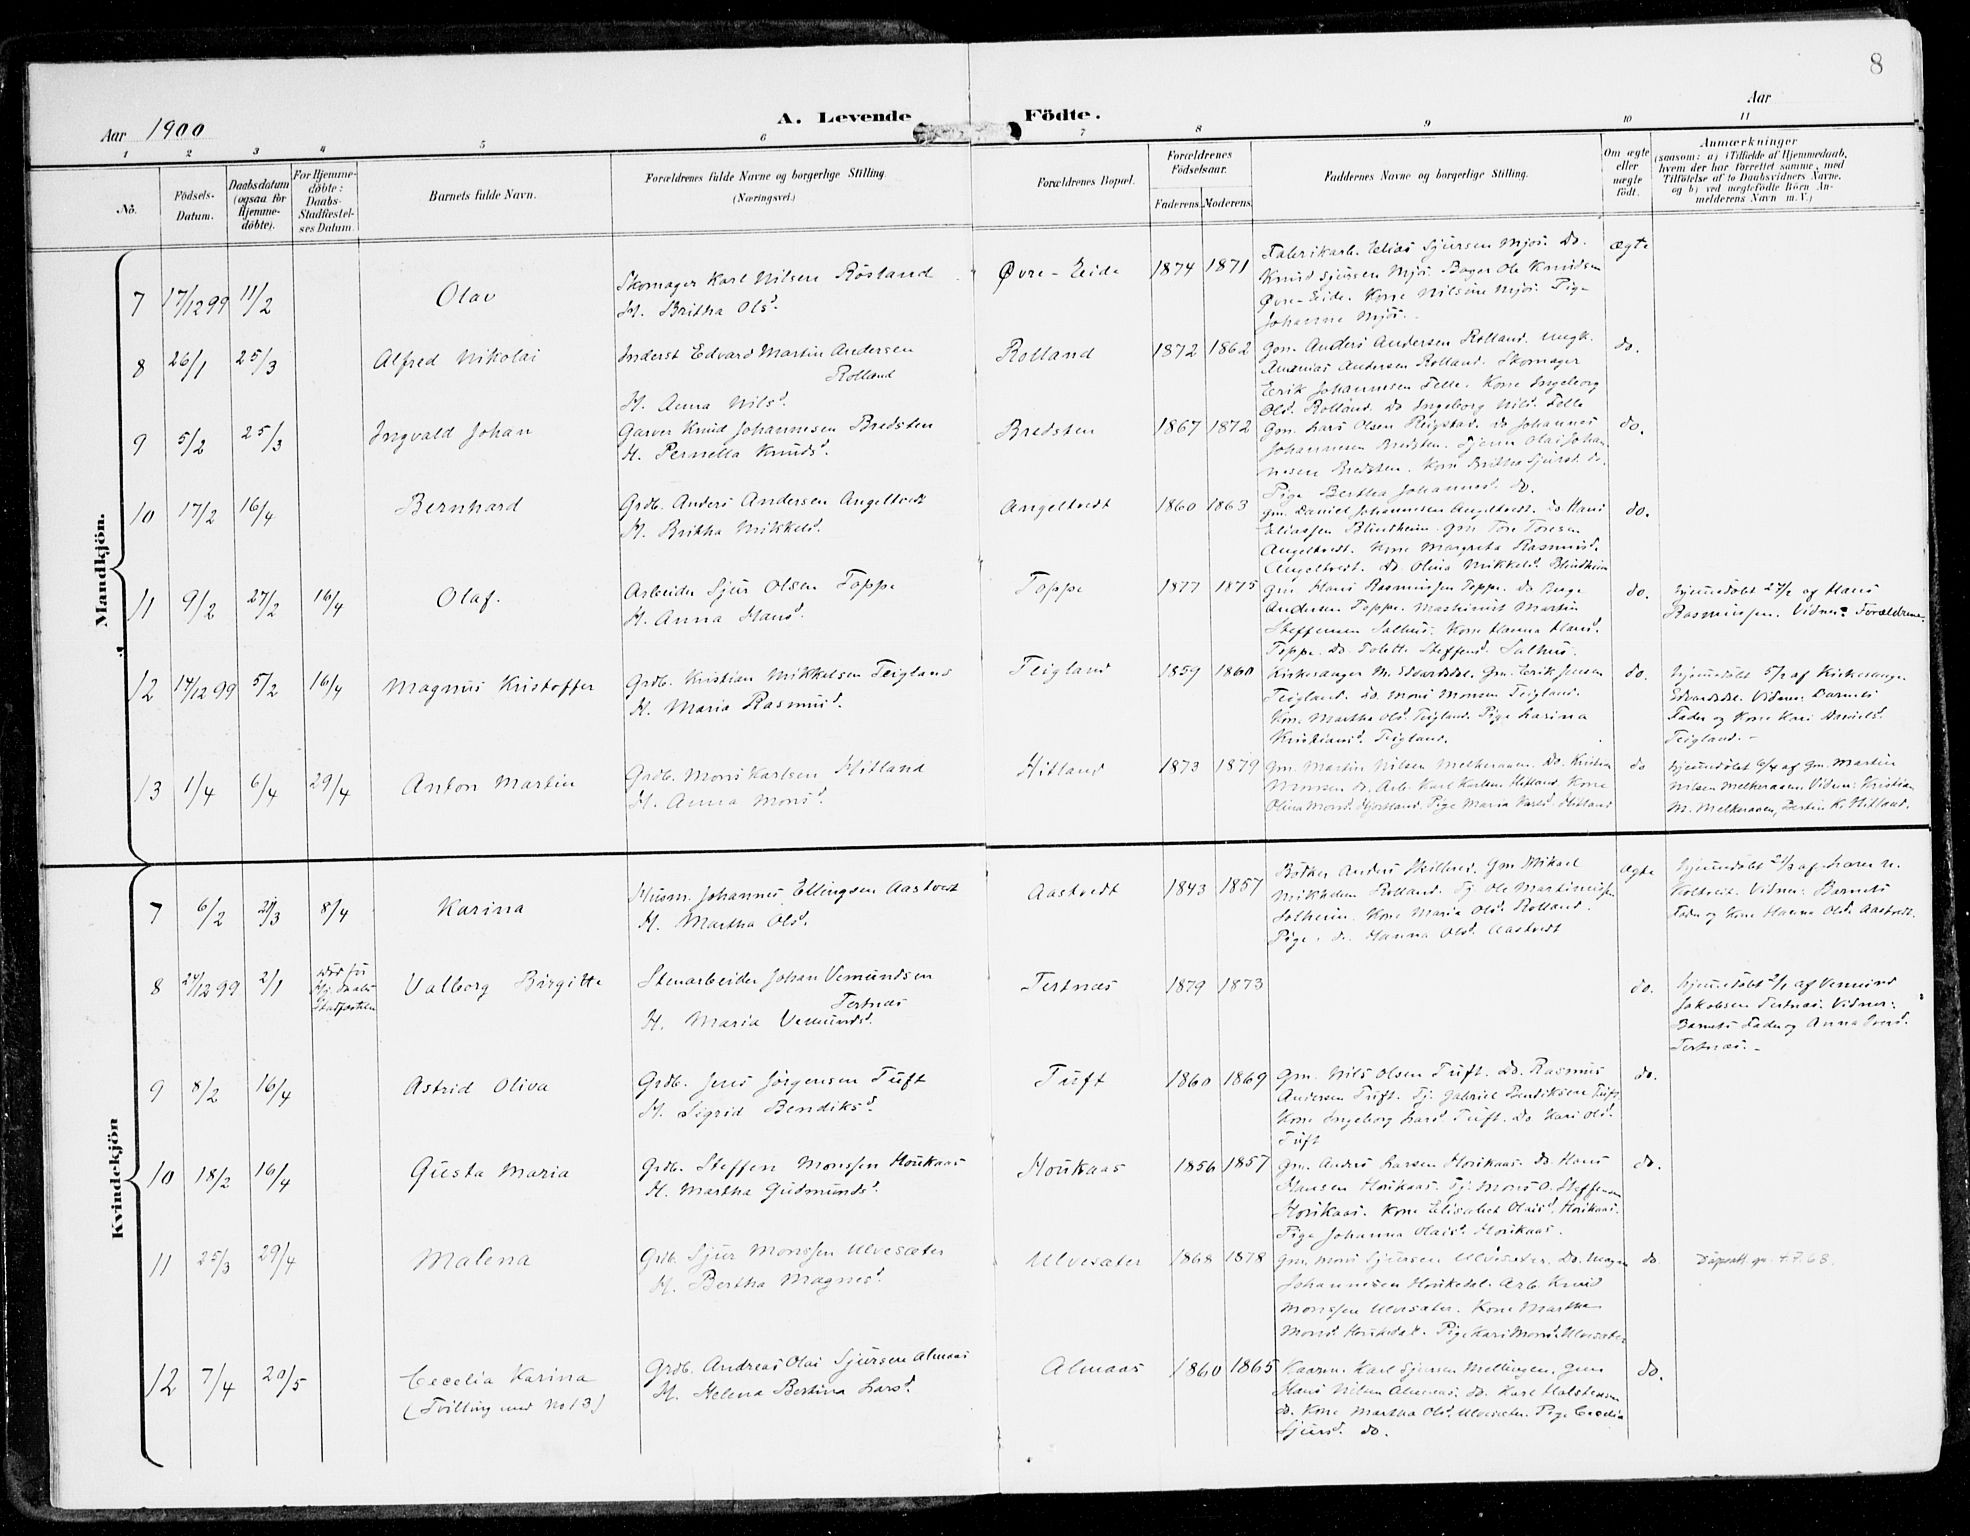 8
Aar 1900
A. Levende Födte.
Aar
1 2 3 4 5 6 7 8 9 10 11
No.
Födsels-Datum.
Daabsdatum (ogsaa for Hjemmedöbte).
For Hjemmedöbte: Daabs-Stadfæstelses Datum.
Barnets fulde Navn.
Forældrenes fulde Navne og borgerlige Stilling.
(Næringsvei.)
Forældrenes Bopæl.
Forældrenes Födselsaar.
Faderens. Moderens.
Faddernes Navne og borgerlige Stilling.
Om ægte eller uægte födt.
Anmærkninger
(saasom: a) i Tilfælde af Hjemmedaab,
hvem der har forrettet samme, med
Tilföielse af to Daabsvidners Navne,
og b) ved uægtefödte Börn An-
melderens Navn m. V.)
Mandkjön.
7 17/12 99 11/2 Olav
Skomager Karl Nilsen Røsland
H. Britha Olsd.
Øvre-Eide 1874 1871
Fabrikarb. Elias Sjursen Mjøs. Do.
Knud Sjursen Mjøs. Bager Ole Knudsen
Øvre-Eide. Kone Nilsine Mjøs. Pige
Johanne Mjøs.
ægte
8 26/1 25/3 Alfred Nikolai
Inderst Edvard Martin Andersen
Rolland
H. Anna Nilsd.
Rolland 1872 1862
Gm. Anders Andersen Rolland. Ungk.
Ananias Andersen Rolland. Skomager
Erik Johannesen Telle. Kone Ingeborg
Olsd. Rolland. Do Ingeborg Nilsd. Telle
do.
9 5/2 25/3 Ingvald Johan
Garver Knud Johannesen Bredsten
H. Pernella Knudsd.
Bredsten 1867 1872
Gm. Lars Olsen Reigstad. Do Johannes
Johannesen Bredsten. Tjener Olai Johan
nesen Bredsten. Kone Britha Sjursd. do.
Pige Bertha Johannesd. do.
do.
10 17/2 16/4 Bernhard
Grdb. Anders Andersen Angeltvedt
H. Britha Mikkelsd.
Angeltvedt 1860 1863
Gm. Daniel Johannesen Angeltvedt. Do Hans
Eliassen Blindheim. Gm Tore Toresen
Angeltvedt. Kone Margreta Rasmusd.
Angeltvedt. Do Olina Mikkelsd. Blindheim
do.
11 9/2 27/2 16/4 Olaf.
Arbeider Sjur Olsen Toppe
H. Anna Hansd.
Toppe 1877 1875
Gm Hans Rasmussen Toppe. Do Børge
Andersen Toppe. Maskinist Martin
Steffensen Salhus. Kone Hanna Hansd.
Toppe. Do Tolette Steffensd. Salhus.
do.
Hjemmedöbt 27/2 af Hans
Rasmussen. Vidner: Forældrene.
12 14/12 99 5/2 16/4 Magnus Kristoffer
Grdb. Kristian Mikkelsen Teigland
H. Maria Rasmusd.
Teigland 1859 1860
Kirkesanger M. Edvardsdal. Gm. Erik Jensen
Teigland. Do Mons Monsen Teigland.
Kone Martha Olsd. Teigland. Pige Larina
Kristiansd. Teigland.
do.
Hjemmedöbt 5/2 af Kirkesanger
Edvardsdal. Vidner: Barnets
Fader og Kone Kari Danielsd.
Teigland.
13 1/4 6/4 29/4 Anton Martin
Grdb. Mons Karlsen Hitland
H. Anna Monsd.
Hitland 1873 1879
Gm. Martin Nilsen Melkeraaen. Do. Kristian
Monsen do. Arb. Karl Karlsen Hitland. Kone
Olina Monsd. Hjortland. Pige Maria Karlsd. Hitland
do
Hjemmedöbt 6/4 af Gm. Martin
Nilsen Melkeraaen. Vidner: Kristian
M. Melkeraaen, Bertin K. Hitland.
Kvindekjön
7 6/2 21/3 8/4 Karina
Husm. Johannes Ellingsen Aastvedt
H. Martha Olsd.
Aastvedt 1843 1857
Bødker Anders Skillnes. Gm Mikael
Mikkelsen Rolland. Tj. Ole Martinussen
Solheim. Kone Maria Olsd. Rolland.
Pige Hanna Olsd. Aastvedt
ægte
Hjemmedöbt 21/3 af Lærer N.
Koltveit. Vidner: Barnets
Fader og Kone Hanna Olsd. Aastvedt.
8 24/12 99 2/1 Valborg Birgitte
Stenarbeider Johan Vemundsen
Tertnæs
H. Maria Vemundsd.
Tertnæs 1879 1873
do.
Hjemmedöbt 2/1 af Vemund
Jakobsen Tertnæs. Vidner:
Barnets Fader og Anna Iversd.
Tertnæs.
9 8/2 16/4 Astrid Oliva
Grdb. Jens Jørgensen Tuft
H. Sigrid Bendiksd.
Tuft 1860 1869
Gm. Nils Olsen Tuft. Do. Rasmus
Andersen Tuft. Tj. Gabriel Bendiksen Tuft.
Kone Ingeborg Larsd. Tuft. Do Kari Olsd.
Tuft
do.
10 18/2 16/4 Gusta Maria
Grdb. Steffen Monssen Houkaas
H. Martha Gudmundsd.
Houkaas 1856 1857
Gm. Anders Larsen Houkaas. Do Hans
Hansen Houkaas. Tj. Mons A. Steffensen
Houkaas. Kone Elisabet Olaisd. Houkaas.
Pige Johanna Olaisd. Houkaas.
do.
11 25/3 29/4 Malena
Grdb. Sjur Monssen Ulvesæter
H. Bertha Magnesd.
Ulvesæter 1868 1878
Gm. Mons Sjursen Ulvesæter. Do. Magne
Johannesen Houkedal. Arb. Knud
Monssen Ulvesæter. Kone Martha
Monsd. Houkedal. Pige Kari Monsd. Ulvesæter
do.
Dåpsatt. 4.7.68.
12 7/4 20/5 Cecelia Karina
(Tvilling med No 13)
Grdb. Andreas Olai Sjursen Almaas
H. Helena Bertina Larsd.
Almaas 1860 1865
Kaarm. Karl Sjursen Mellingen. Gm
Hans Nilsen Almaas. Do. Karl Halstensen
do. Kone Martha Olsd. Ulvesæter. Pige Cecelia
Sjursd. do.
do.